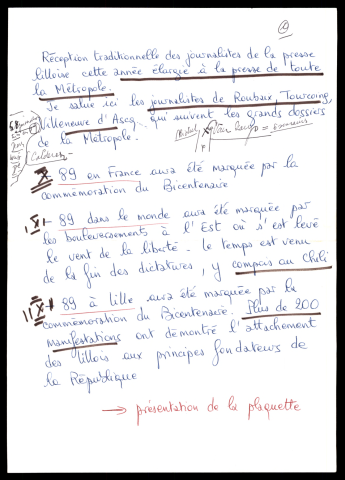 Réception traditionnelle des journalistes de la presse
lilloise cette année élargie à la presse de toute
la Métropole.
Je salue ici les journalistes de Roubaix, Tourcoing,
Villeneuve d'Ascq qui suivent les grands dossiers
de la Métropole.
89 en France aura été marquée par la
commémoration du Bicentenaire
89 dans le monde aura été marquée par
les bouleversements à l'Est où s'est levé
le vent de la liberté - le temps est venu
de la fin des dictatures, y compris au Chili
89 à Lille aura été marquée par la
commémoration du Bicentenaire. Plus de 200
manifestations ont démontré l'attachement
des lillois aux principes fondateurs de
la République
→ présentation de la plaquette